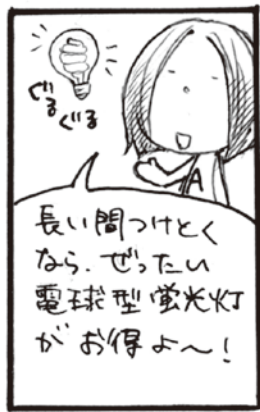 ぐる
ぐる
A
長い間つけとく
なら、ぜったい
電球型蛍光灯
がお得よ〜！